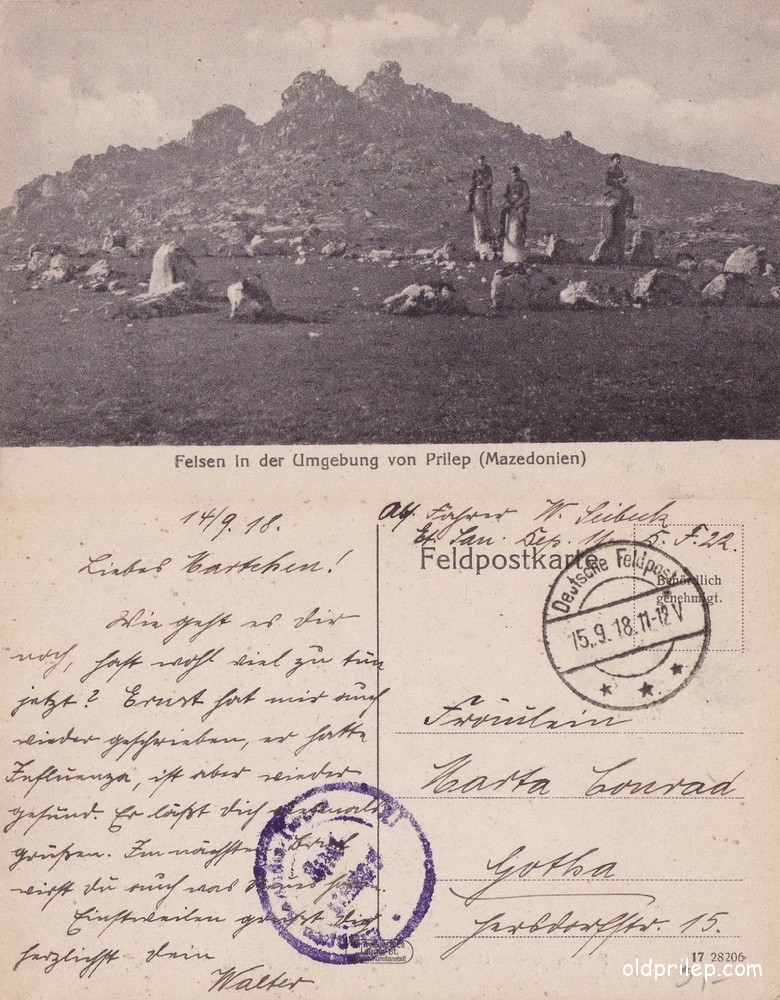 Felsen in der Umgebung von Prilep (Mazedonien)
14/9. 18.
Liebes Martchen!
Wie geht es dir
noch, hast wohl viel zu tun
jetzt? Ernst hat mir auch
wieder geschrieben, er hatte
Influenza, ist aber wieder
gesund. Er läßt Dich
grüßen. Im nächsten
wirst du auch was
Einstweilen grüßt dich
herzlichst dein
Walter
Fahrer W. Seibeck
Et. San. Dep. 11. D. F. 22.
Feldpostkarte
Behördlich
genehmigt.
Deutsche Feldpost
15.9.18.11-12V
Fräulein
Marta Conrad
Gotha
Hersdorfstr. 15.
17 28206
oldprilep.com